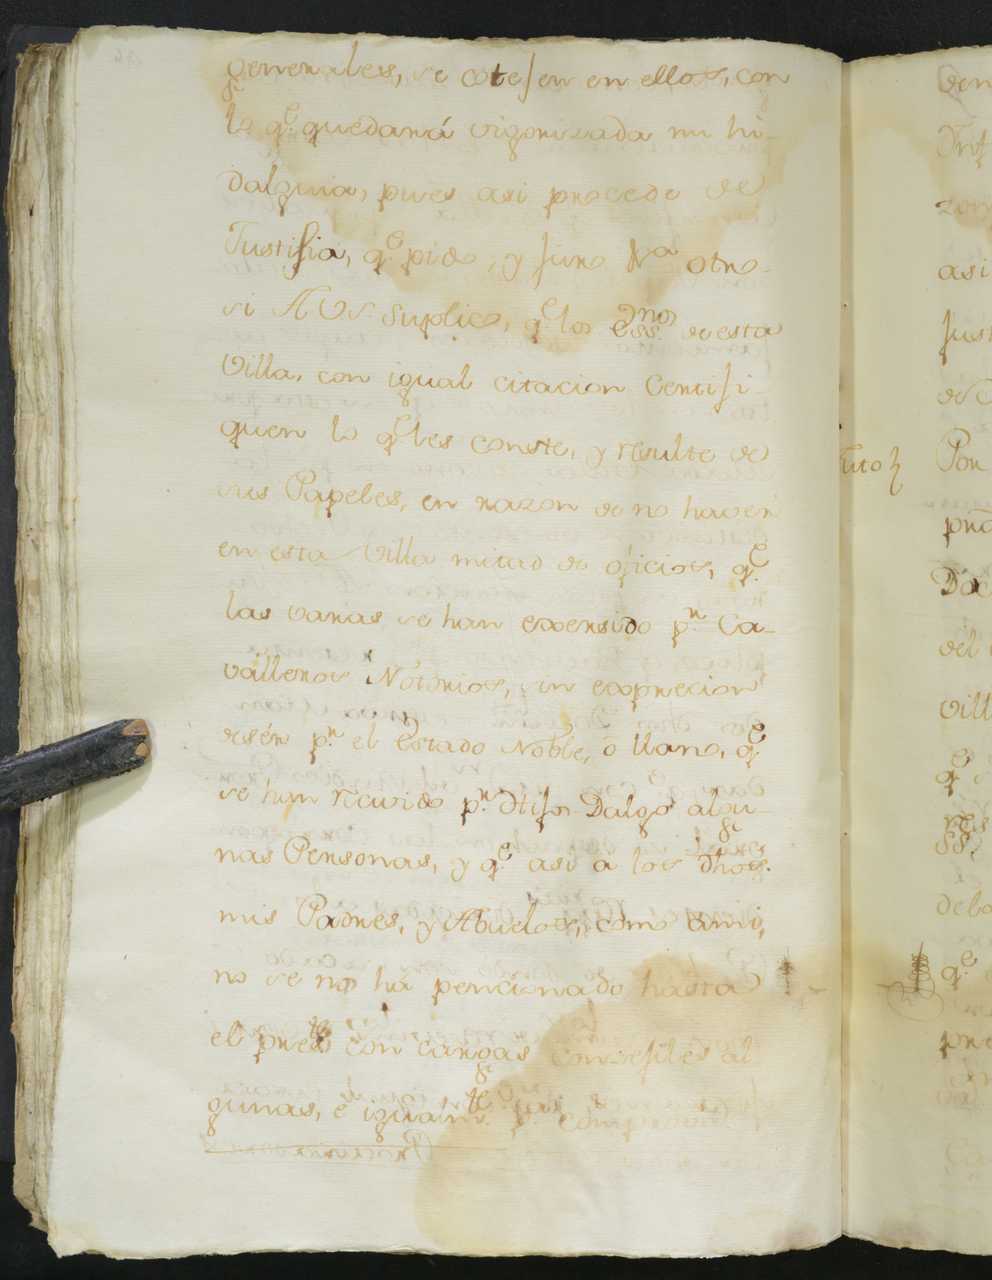 generales, se cotejen en ellos, con
lo q.e quedará vigorizada mi hi-
dalguia, pues asi procede de
Justisia, q.e pido, y juro V.a otro-
si A VS. Suplico, q.e los Ess.nos de esta
Villa, con igual citacion Certifi-
quen lo q.e les conste, y resulte de
sus Papeles, en razon de no haver
en esta Villa mitad de oficios, q.e
las varas se han exersido p.r Ca-
valleros Notorios, sin exprecion
desér p.r el Estado Noble, ó llano, q.e
se han recivido p.r Hijos Dalgo algu-
nas Personas, y q.e asi a los dhos.
mis Padres, y Abuelos, como ami,
no se nos ha pencionado hasta
el pres.te con cargas consejiles al
gunas, é igualm.te p.a
del
Vill
q.e
asi
Just
Por